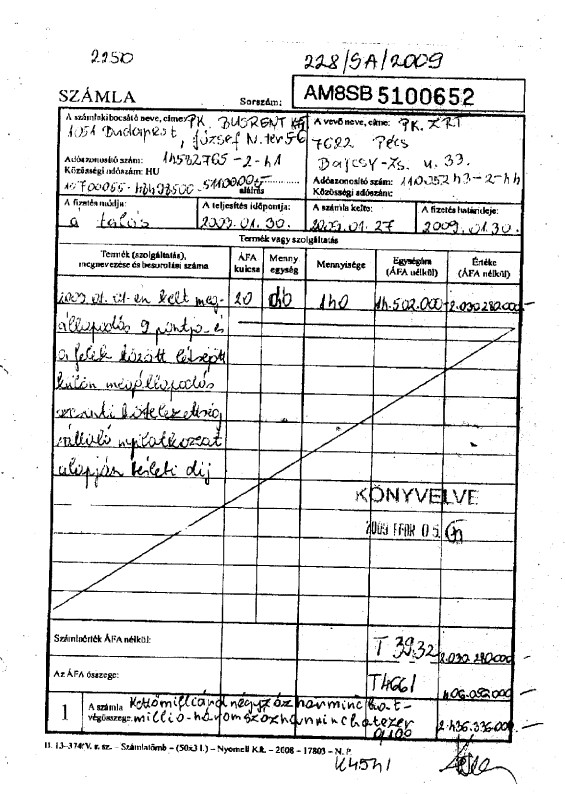 2250
228/SA/2009
SZÁMLA
Sorszám:
AM8SB 5100652
A számlakibocsátó neve, címe: PK. BUSRENT Kft
1051 Budapest, József N. tér 56
Adóazonosító szám: 14582765-2-41
Közösségi adószám: HU
aláírás
A vevő neve, címe: PK. ZRT
7622 Pécs
Bajcsy-Zs. u. 33.
Adóazonosító szám: 11005243-2-44
Közösségi adószám:
A fizetés módja: átalás
A teljesítés időpontja: 2009.01.30.
A számla kelte: 2009.01.27
A fizetés határideje: 2009.01.30.
Termék vagy szolgáltatás
Termék (szolgáltatás), megnevezése és besorolási száma
ÁFA kulcsa
Menny egység
Mennyisége
Egységára (ÁFA nélkül)
Értéke (ÁFA nélkül)
2009.01.01-én kelt meg- 20 db 140 14.502.000 2.030.280.000-
állapodás 9 pontja és
a felek között létrejött
külön megállapodás
szerinti kötelezettség
vállaló nyilatkozat
alapján bérleti díj
KÖNYVELVE
2009 FEBR 05.
Számlaérték ÁFA nélkül: T 3932 2.030.280.000-
Az ÁFA összege: T4661 406.056.000-
1 A számla végösszege: Kettőmilliárdnégyszázharminchat-
millió-háromszázharminchatezer
2.436.336.000-
B. 13-374/V. r. sz. – Számlatömb – (50x3 l.) – Nyomell Kft. – 2008 – 17803 – N. P.
K4541